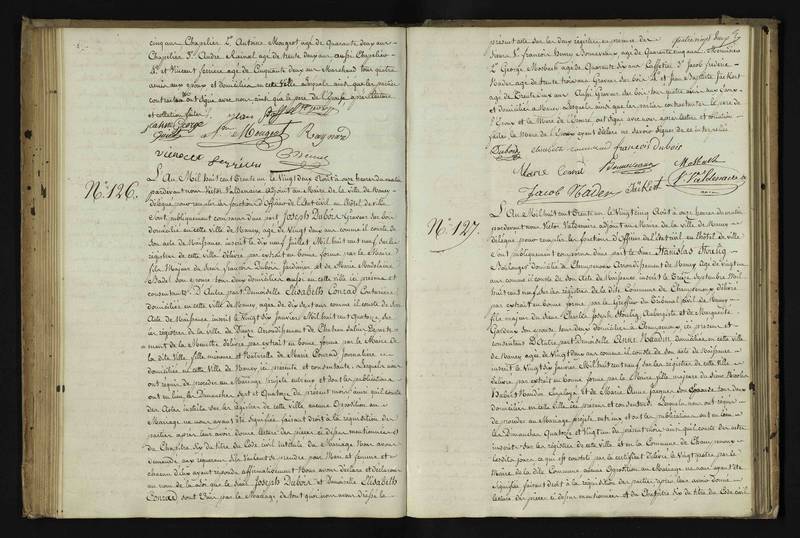 cinq ans Chapelier 2° Antoine Mougeot agé de Quarante deux ans
Chapelier 3° André Rainal agé de trente deux ans aussi Chapelier
et Vincent ferriere agé de Cinquante deux ans Marchand tous quatre
amis aux epoux et domiciliés en cette Ville lesquels ainsi que les parties
contractantes ont signé avec nous ainsi que le pere de l'Epouse après lecture
et collation faites
jean
Mougeot Raynard
vincent ferriere
N° 126.
L'An Mil huit cent trente un le Vingt deux Août à onze heures du matin
pardevant nous Victor Valdenaire adjoint au Maire de la ville de Nancy
délégué pour remplir les fonctions d'Officier de l'état civil en l'hôtel de ville
sont publiquement comparus d'une part Joseph Dubois Graveur sur bois
domicilié en cette ville de Nancy, agé de Vingt deux ans comme il conste de
son acte de Naissance inscrit le dix neuf juillet Mil huit cent neuf sur les
registres de cette ville délivré par extrait en bonne forme par le Maire
fils Majeur de Sieur françois Dubois jardinier et de Marie Madeleine
son epouse tous deux domiciliés aussi en cette ville ici présens et
consentans D'Autre part Demoiselle Elisabeth Conrad Couturiere
domiciliée en cette ville de Nancy, agée de dix sept ans comme il conste de son
Acte de Naissance inscrit le Vingt six Janvier Mil huit cent quatorze sur
les registres de la ville de Arrondissement de Chateau Salins Departe
ment de la Meurthe délivré par extrait en bonne forme par le Maire de
la dite Ville, fille mineure et Naturelle de Marie Conrad, journaliere
domiciliée en cette Ville de Nancy ici présente et consentante. Lesquels nous
ont requis de procéder au Mariage projeté entr'eux et dont les publications
ont eu lieu les Dimanches sept et Quatorze du présent mois ainsi qu'il conste
des Actes inscrits sur les registres de cette Ville, aucune Opposition au
Mariage ne nous ayant été signifiée faisant droit à la réquisition des
parties après leur avoir donné lecture des pièces ci dessus mentionnées et
du Chapitre six du titre du Code civil intitulé du Mariage Nous avons
demandé aux requerans s'ils veulent se prendre pour Mari et femme et
chacun d'Eux ayant repondu affirmativement Nous avons déclaré et déclarons
au nom de la Loi que le sieur Joseph Dubois et Demoiselle Elisabeth
Conrad sont Unis par le Mariage, de tout quoi nous avons dressé le
présent acte sur les deux registres en presence des
françois Henry Bonnaveaux agé de Quarante cinq ans Menuisier
2° George Mosbach agé de Quarante six ans 3° Jacob frederic
Nader agé de trente trois ans Graveur sur bois et jean Baptiste
agé de trente deux ans Aussi Graveur sur bois tous quatre amis aux Epoux
et domiciliés à Nancy lesquels ainsi que les parties contractantes le pere de
l'Epoux et la Mere de l'Epouse ont signé avec nous après lecture et collation
faites la Mere de l'Epoux ayant déclaré ne savoir signer de ce interpellée
Dubois elisabeth conrad francois dubois
Marie Conrad Bonnaveaux Mosbach
Jacob Nader V. Valdenaire
N° 127.
L'An Mil huit cent trente un le Vingt cinq Août à onze heures du matin
pardevant nous Victor Valdenaire adjoint au Maire de la ville de Nancy
délégué pour remplir les fonctions d'Officier de l'état civil en l'hôtel de ville
sont publiquement comparus d'une part le Sieur Stanislas
Boulanger domicilié à Champenoux Arrondissement de Nancy agé de Vingt un
ans comme il conste de son Acte de Naissance inscrit le Treize Septembre Mil
huit cent neuf sur les registres de la dite Commune de Champenoux délivré
par extrait en bonne forme par le Greffier du Tribunal civil de Nancy
fils majeur du Sieur Charles joseph Aubergiste et de Marguerite
son epouse tous deux domiciliés à Champenoux, ici présens et
consentans D'Autre part Demoiselle Anne domiciliée en cette ville
de Nancy agée de Vingt deux ans comme il conste de son acte de Naissance
inscrit le Vingt six Janvier Mil huit cent neuf sur les registres de cette Ville
délivré par extrait en bonne forme par le Maire fille, majeure du sieur Nicolas
et de Marie Anne son Epouse tous deux
domiciliés en cette Ville ici présens et consentans. Lesquels nous ont requis
de procéder au Mariage projeté entr'eux et dont les publications ont eu lieu
les Dimanches Quatorze et Vingt un du présent mois ainsi qu'il conste des actes
inscrits sur les registres de cette ville et en la Commune de Champenoux
ce qui est constaté par le certificat délivré le Vingt quatre par le
Maire de la dite Commune aucune Opposition au Mariage ne nous ayant été
signifiée faisant droit à la réquisition des parties après leur avoir donné
lecture des pièces ci dessus mentionnées et du Chapitre six du titre du Code civil